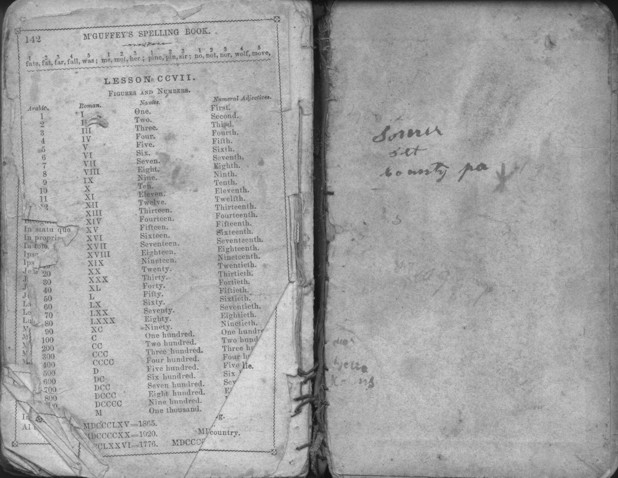 142 M'GUFFEY'S SPELLING BOOK.
fate, fat, far, fall, was; me, met, her; pine, pin, sir; no, not, nor, wolf, move,
LESSON CCVII.
FIGURES AND NUMBERS.
Arabic. Roman. Names. Numeral Adjectives.
1 I One. First.
2 II Two. Second.
3 III Three. Third.
4 IV Four. Fourth.
5 V Five. Fifth.
6 VI Six. Sixth.
7 VII Seven. Seventh.
8 VIII Eight. Eighth.
9 IX Nine. Ninth.
10 X Ten. Tenth.
11 XI Eleven. Eleventh.
XII Twelve. Twelfth.
XIII Thirteen. Thirteenth.
XIV Fourteen. Fourteenth.
XV Fifteen. Fifteenth.
XVI Sixteen. Sixteenth.
XVII Seventeen. Seventeenth.
XVIII Eighteen. Eighteenth.
XIX Nineteen. Nineteenth.
20 XX Twenty. Twentieth.
30 XXX Thirty. Thirtieth.
40 XL Forty. Fortieth.
50 L Fifty. Fiftieth.
60 LX Sixty. Sixtieth.
70 LXX Seventy. Seventieth.
80 LXXX Eighty. Eightieth.
90 XC Ninety. Ninetieth.
100 C One hundred. One hundr
200 CC Two hundred. Two hund
300 CCC Three hundred. Three h
400 CCCC Four hundred. Four h
500 D Five hundred. Five
600 DC Six hundred. Six
700 DCC Seven hundred. Sev
800 DCCC Eight hundred.
DCCCC Nine hundred.
M One thousand.
MDCCCLXV—1865.
MDCCCCXX—1920. country.
CLXXVI—1776. MDCCC
county pa